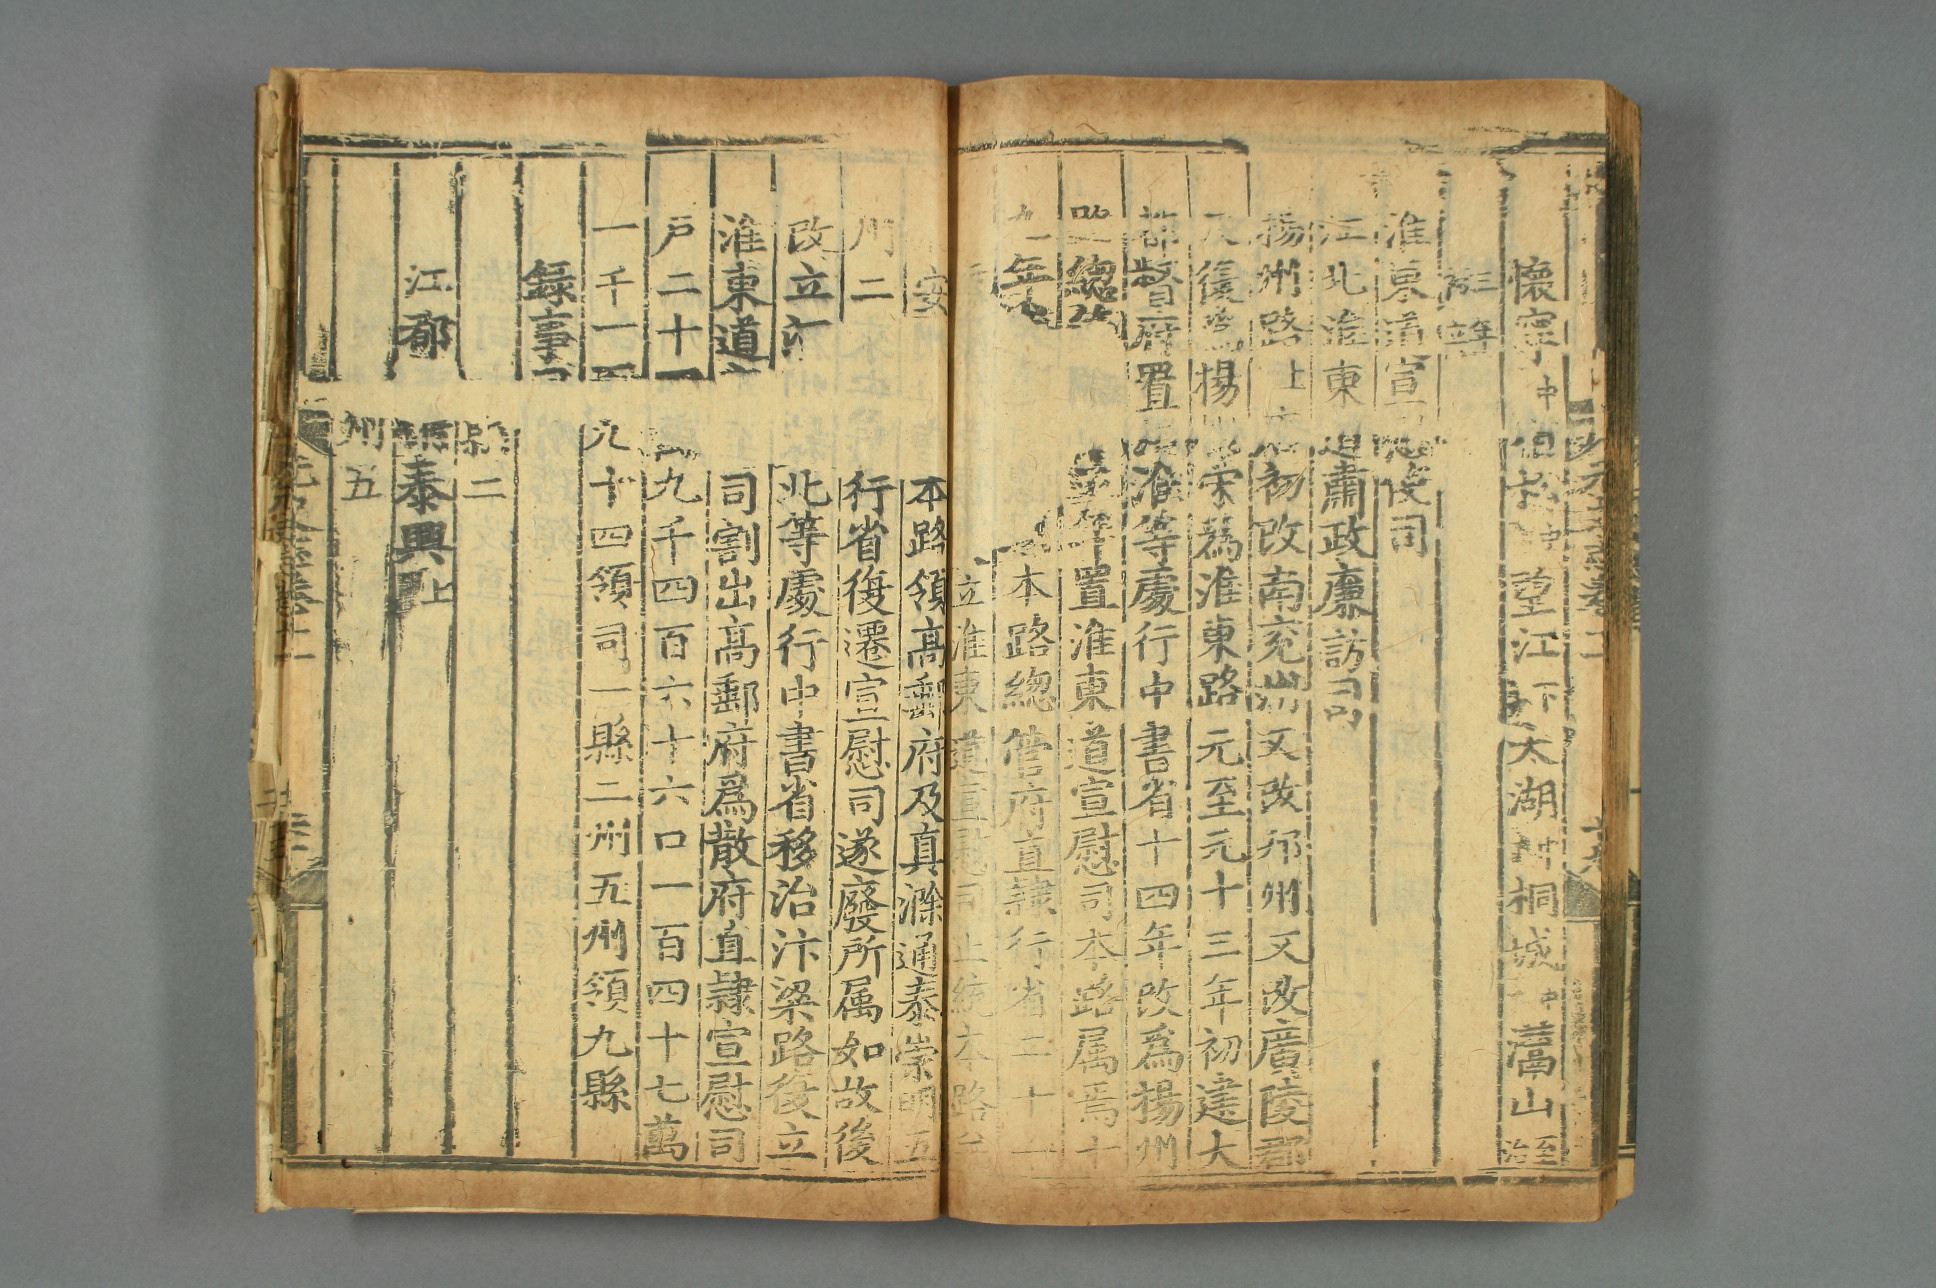 懷寧中 宿松中 望江下 太湖中 桐城中 灊山至
三等 治
淮東道宣慰使司
江北淮東道肅政廉訪司
揚州路上 初改南兗州又改邗州又改廣陵郡
又復爲揚 宋爲淮東路元至元十三年初建大
都督府置 淮等處行中書省十四年改爲揚州
路總 年置淮東道宣慰司本路属焉十
九年 本路總管府直隷行省二十一
立淮東道宣慰司止統本路
安 本路領高郵府及真滁通泰崇明五
州二 行省復遷宣慰司遂廢所属如故後
改立 北等處行中書省移治汴梁路復立
淮東道 司割出高郵府爲散府直隷宣慰司
戸二十 九千四百六十六口一百四十七萬
一千一百九十四領司一縣二州五州領九縣
録事
縣二
江都 泰興上
州五
元史志卷十一